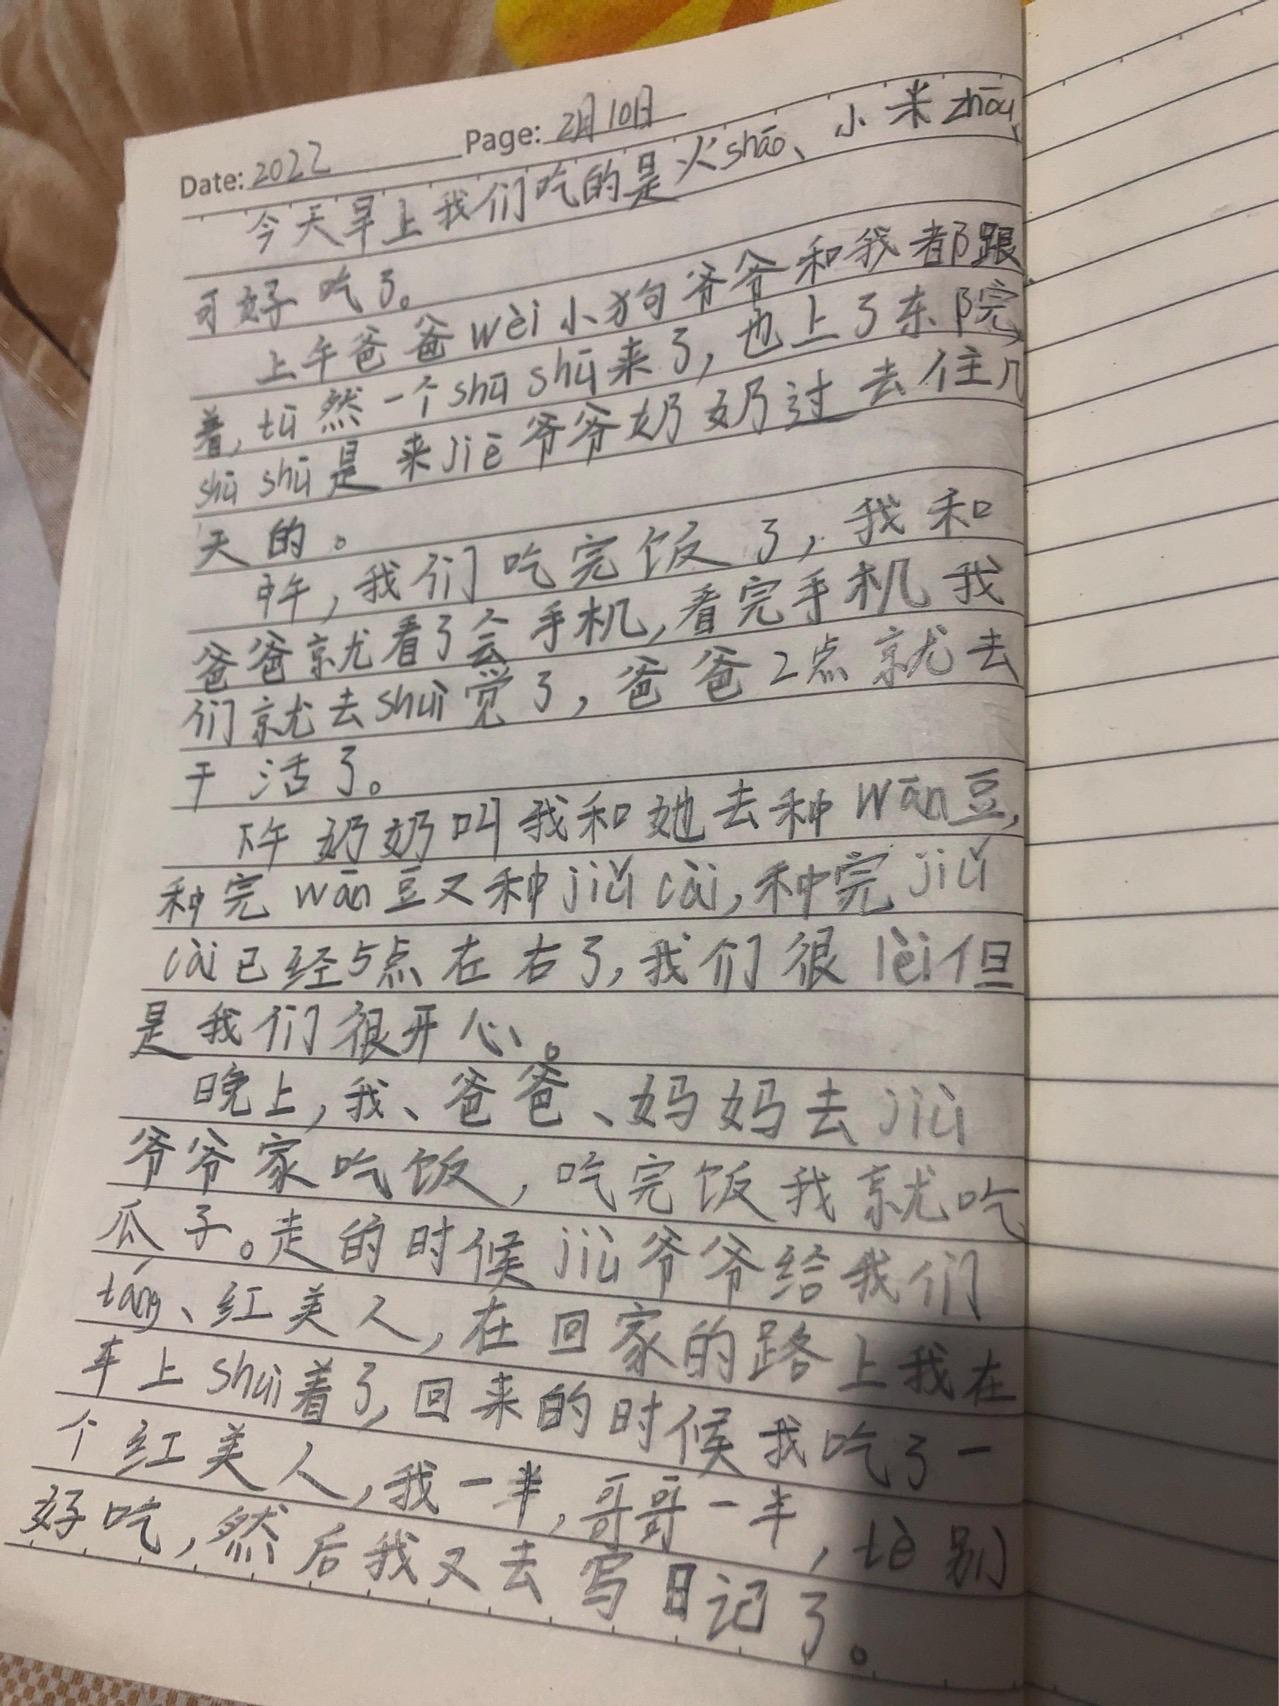 Date: 2022 Page: 2月10日
今天早上我们吃的是火shāo、小米zhōu,
可好吃了。
上午爸爸wèi小狗爷爷和我都跟
着,tū然一个shū shū来了,也上了东院,
shū shū是来jiē爷爷奶奶过去住几
天的。
中午,我们吃完饭了,我和
爸爸就看了会手机,看完手机我
们就去shuì觉了,爸爸2点就去
干活了。
下午奶奶叫我和她去种wān豆,
种完wān豆又种jiǔ cài,种完jiǔ
cài已经5点左右了,我们很lèi但
是我们很开心。
晚上,我、爸爸、妈妈去jiù
爷爷家吃饭,吃完饭我就吃
瓜子。走的时候jiù爷爷给我们
táng、红美人,在回家的路上我在
车上shuì着了,回来的时候我吃了一
个红美人,我一半,哥哥一半,tè别
好吃,然后我又去写日记了。